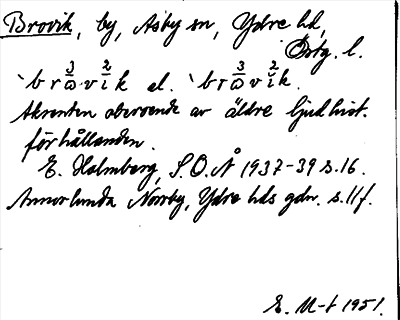 Brovik, by, Asby sn, Ydre hd,
Östg. l.
`brω̄³·vī²k el. `brω̄³vĭ²k.
Akcenten oberoende av äldre ljudhist.
förhållanden.
E. Holmberg, S.O.Å 1937-39 s.16.
Annorlunda Norrby, Ydre hds gdn. s.11f.
E. M-t 1951.